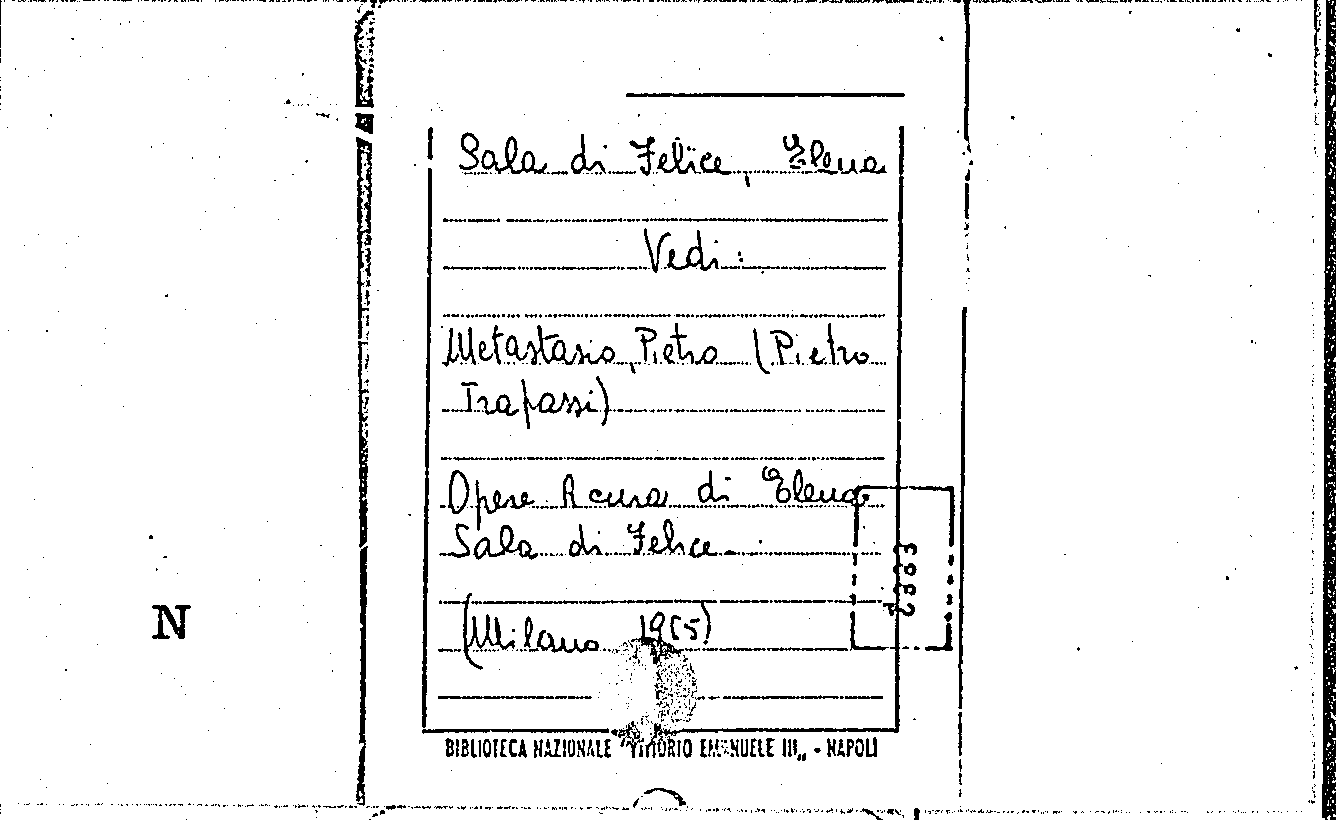 Sala di Felice, Elena
Vedi:
Metastasio, Pietro (Pietro
Trapassi)
Opere A cura di Elena
Sala di Felice.
(Milano 1965)
N
BIBLIOTECA NAZIONALE "VITTORIO EMANUELE III„ - NAPOLI